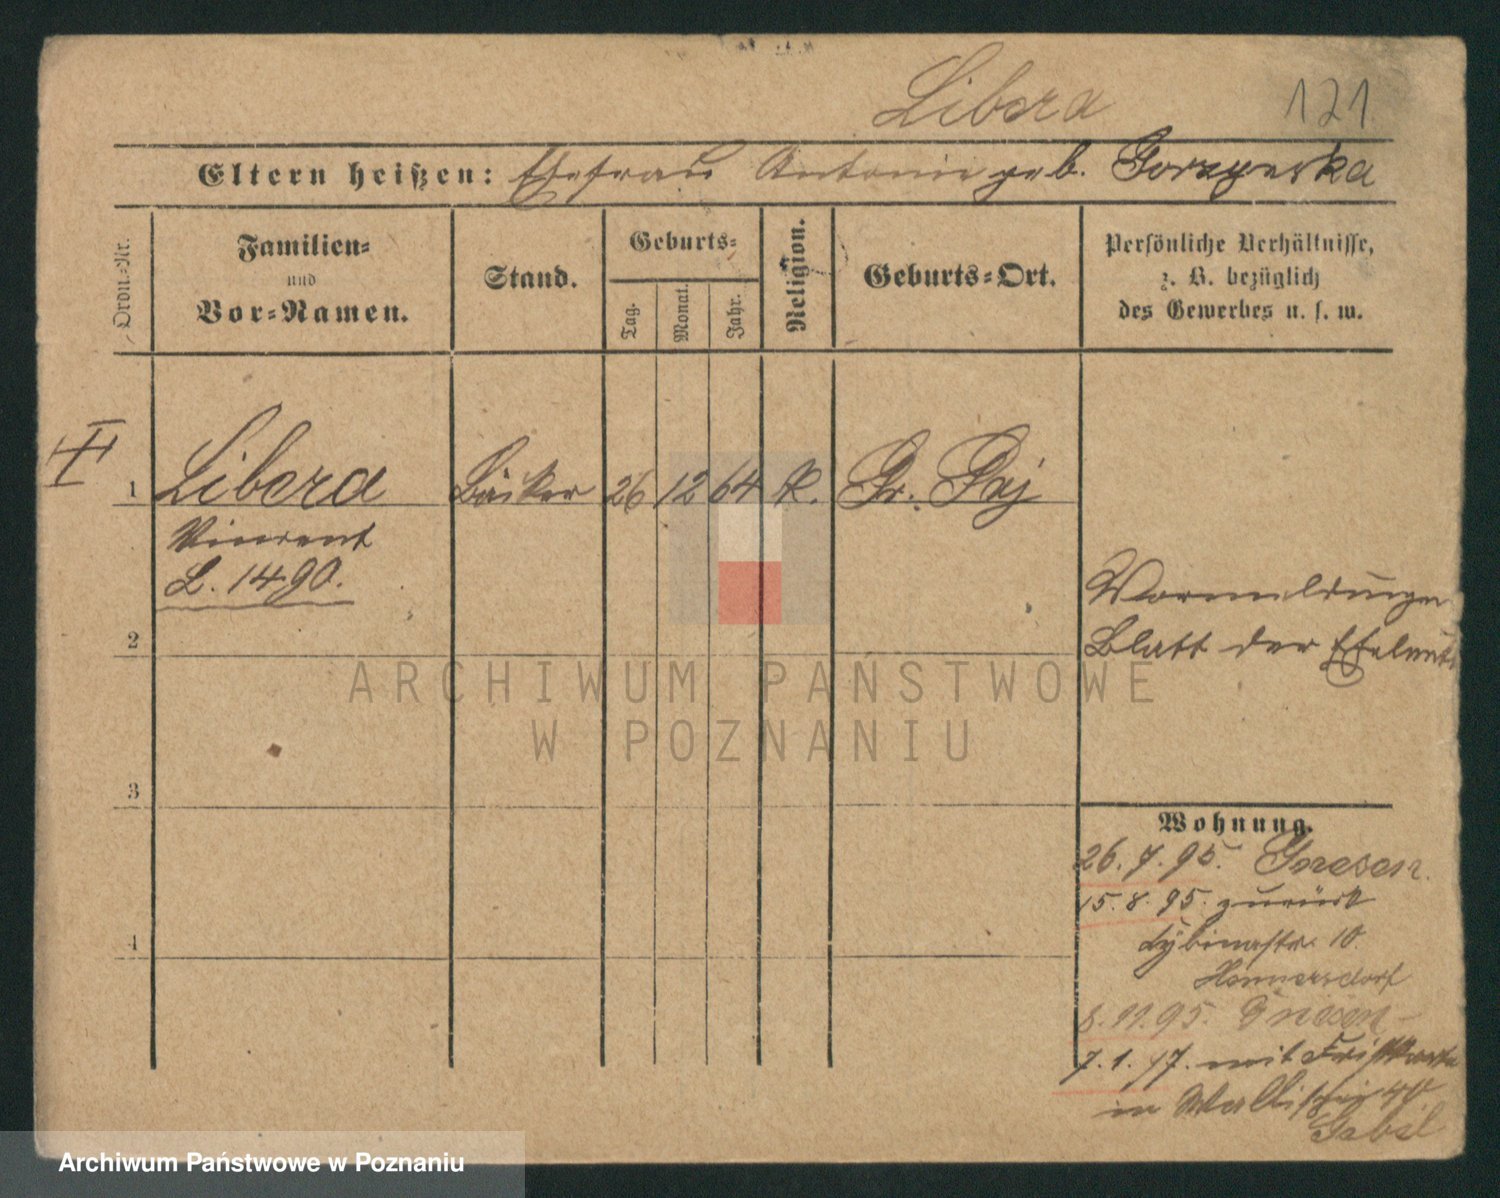 Libera 121
Eltern heißen: Ehefrau Antonie geb.
Ordn.-Nr.
Familien-
und
Vor-Namen.
Stand.
Geburts-
Tag.
Monat.
Jahr.
Religion.
Geburts-Ort.
Persönliche Verhältnisse,
z. B. bezüglich
des Gewerbes u. s. w.
1 Libera Bäcker 26 12 64 K. Gr.
Vincent
L. 1490.
2
Blatt der Eheleute
3
4
Wohnung.
26. 7. 95.
15. 8. 95. zurück
Cybinastr. 10
8. 11. 95. Gnesen
7. 1. 97. mit
in Wallischei 40
ARCHIWUM PAŃSTWOWE
W POZNANIU
Archiwum Państwowe w Poznaniu